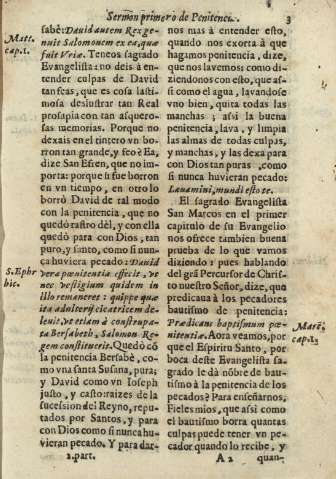 Sermon primero de Penitenc.. 3
Matt. cap.1.
sabè: Dauid autem Rex ge-
nuit Salomonem ex ea, quæ
fuit Vriæ. Teneos sagrado
Euangelista: no deis à en-
tender culpas de Dauid
tan feas, que es cosa lasti-
mosa deslustrar tan Real
prosapia con tan asquero-
sas memorias. Porque no
dexais en el tintero vn bo-
rron tan grande, y feo? Ea,
dize San Efren, que no im-
porta: porque si fue borron
en vn tiempo, en otro lo
borrò Dauid de tal modo
con la penitencia, que no
quedò rastro dèl, y con ella
quedò para con Dios, tan
puro, y santo, como si nun-
ca huviera pecado: Dauid
S. Ephr
hic.
vere pœnitentia effecit, ve
nec vestigium quidem in
illo remaneret: quippe quæ
ita adulterij cicatricem de-
leuit, vt etiam à construpa-
ta Bersabeth, Salomon Re-
gem constitueris. Quedò cō
la penitencia Bersabè, co-
mo vna santa Susana, pura;
y Dauid como vn Ioseph
justo, y casto: raizes de la
sucession del Reyno, repu-
tados por Santos, y para
con Dios como si nunca hu-
vieran pecado. Y para dar-
2. part.
nos mas à entender esto,
quando nos exorta à que
hagamos penitencia, dize,
que nos lavemos: como di-
ziendonos con esto, que as-
si como el agua, lavandose
vno bien, quita todas las
manchas; assi la buena
penitencia, lava, y limpia
las almas de todas culpas,
y manchas, y las dexa para
con Dios tan puras, como
si nunca huvieran pecado:
Lauamini, mundi estote.
El sagrado Euangelista
San Marcos en el primer
capitulo de su Euangelio
nos ofrece tambien buena
prueba de lo que vamos
diziendo: pues hablando
del grā Percursor de Chris-
to nuestro Señor, dize, que
predicaua à los pecadores
bautismo de penitencia:
Prædicans baptismum pœ-
nitentiæ. Aora veamos, por
Marc.
cap. 1.
que el Espiritu Santo, por
boca deste Euangelista sa-
grado le dà nōbre de bau-
tismo à la penitencia de los
pecados? Para enseñarnos,
Fieles mios, que assi como
el bautismo borra quantas
culpas puede tener vn pe-
cador quando lo recibe, y
A 2 quan-